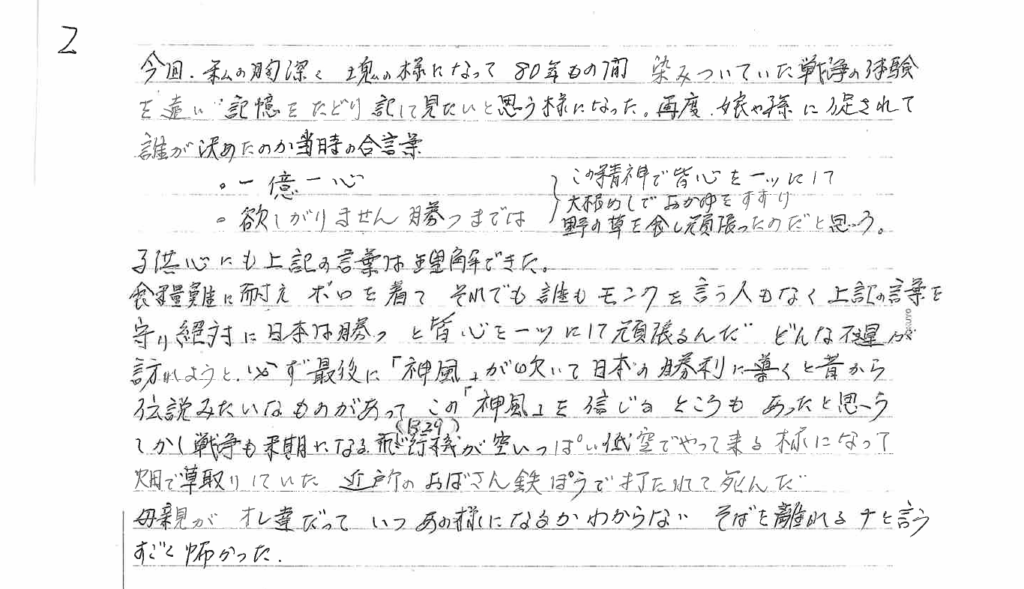 2
今回、私の胸深く 塊の様になって 80年もの間 染みついていた戦争の体験
を遠い 記憶をたどり記して見たいと思う様になった。再度、娘や孫に促されて
誰が決めたのか当時の合言葉
・一億一心
・欲しがりません勝つまでは
この精神で皆心を一ツにして
大根めしでおかゆをすすり
野の草を食し頑張ったのだと思う。
子供心にも上記の言葉は理解できた。
食糧難に耐え ボロを着て それでも誰もモンクを言う人もなく上記の言葉を
守り絶対に日本は勝つ と皆心を一ツにして頑張るんだ どんな不運が
訪れようと、必ず最後に「神風」が吹いて日本の勝利に導くと昔から
伝説みたいなものがあって この「神風」を信じる ところも あったと思う
(B29)
しかし戦争も末期になる 飛行機が空いっぱい低空でやって来る様になって
畑で草取りしていた 近所のおばさん鉄ぽうで打たれて死んだ
母親が オレ達だって いつあの様になるかわからない そばを離れるナと言う
すごく怖かった.